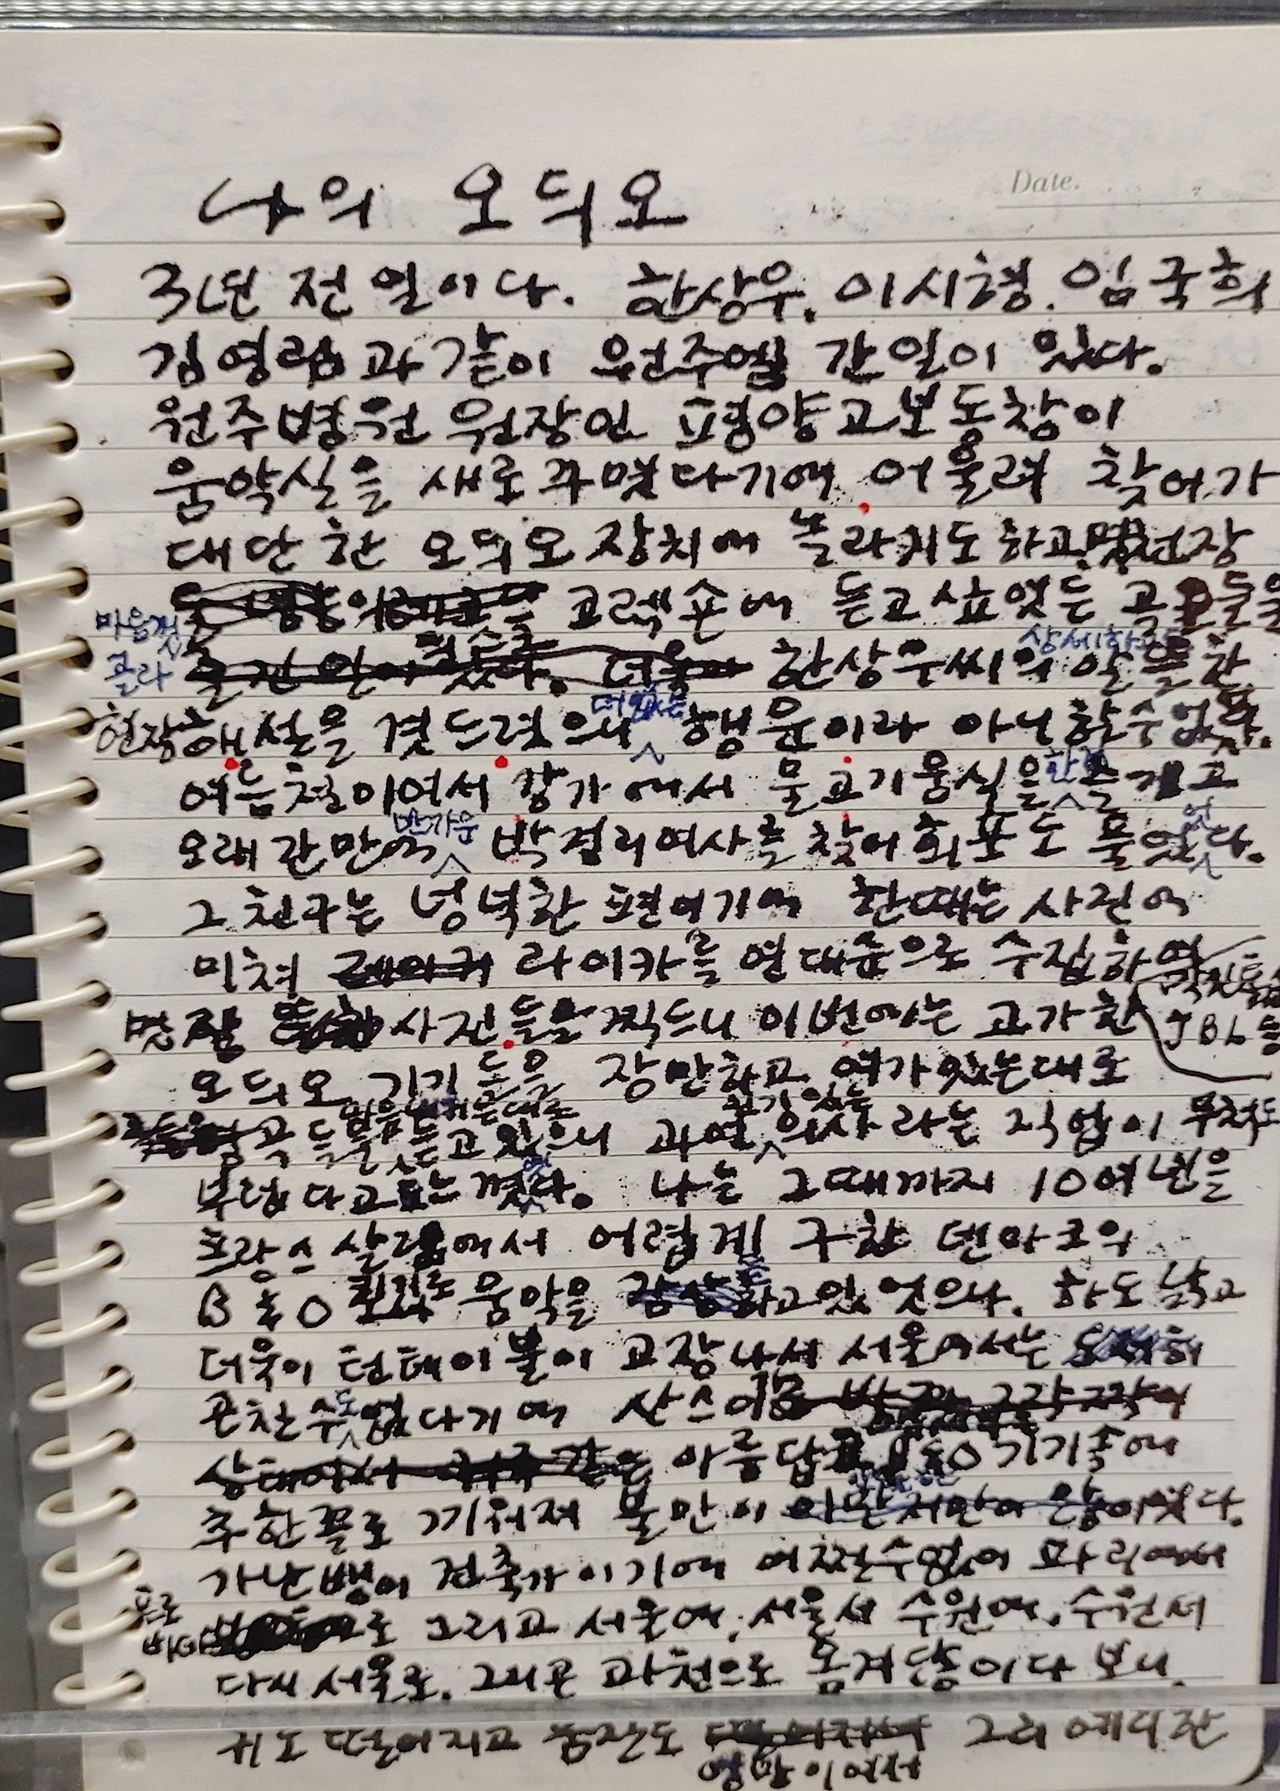 Date.
나의 오듸오
3년 전 일이다. 한상우, 이시형, 임국희
김영림과 같이 원주엘 간 일이 있다.
원주병원 원장인 평양고보 동창이
움악실을 새로 꾸몃다기에 어울려 찾어가
대단한 오듸오 장치에 놀라키도 하고
코렉숀에 듣고 싶엇든 곡들을
마음껏
골라 한상우씨의 상세하고 알뜰한
현장해설을 곗드렷으니 더없는 행운이라 아니 할 수 없다.
여름철이여서 강가에서 물고기 움식을 한껏 즐겨고
오래간만에 반가운 박경리 여사를 찾어 회포도 풀엇다.
그 친구는 넝넉한 편이기에 한때는 사진에
미쳐 라이카를 연대순으로 수집하여
멋진 사진들을 찍드니 이번에는 고가한
JBL 등
오듸오 기기들을 장만하고 여가 있는대로
곡들을 듣고 있으니 과연 의사라는 직업이 무척도
부럽다고 나는 그때까지 10여년을
프랑스 살림에서 어렵게 구한 덴마크의
B&O 움악을 하고 있엇으나, 하도 낡고
더욱이 턴테이불이 고장나서 서울에서는
곤칠 수도 없다기에 산스이
아름답고 B&O 기기 속에
추한 꼴로 끼워져 불만이 이엇다.
가난뱅이 건축가이기에 어쩔 수 없어 파리에서
프로
비 로 그리고 서울에, 서울서 수원에, 수원서
다시 서울로, 그리곤 과천으로 옴겨 다이다 보니,
귀도 떨어지고 움잔도 그리 예리찬
엉망이어서